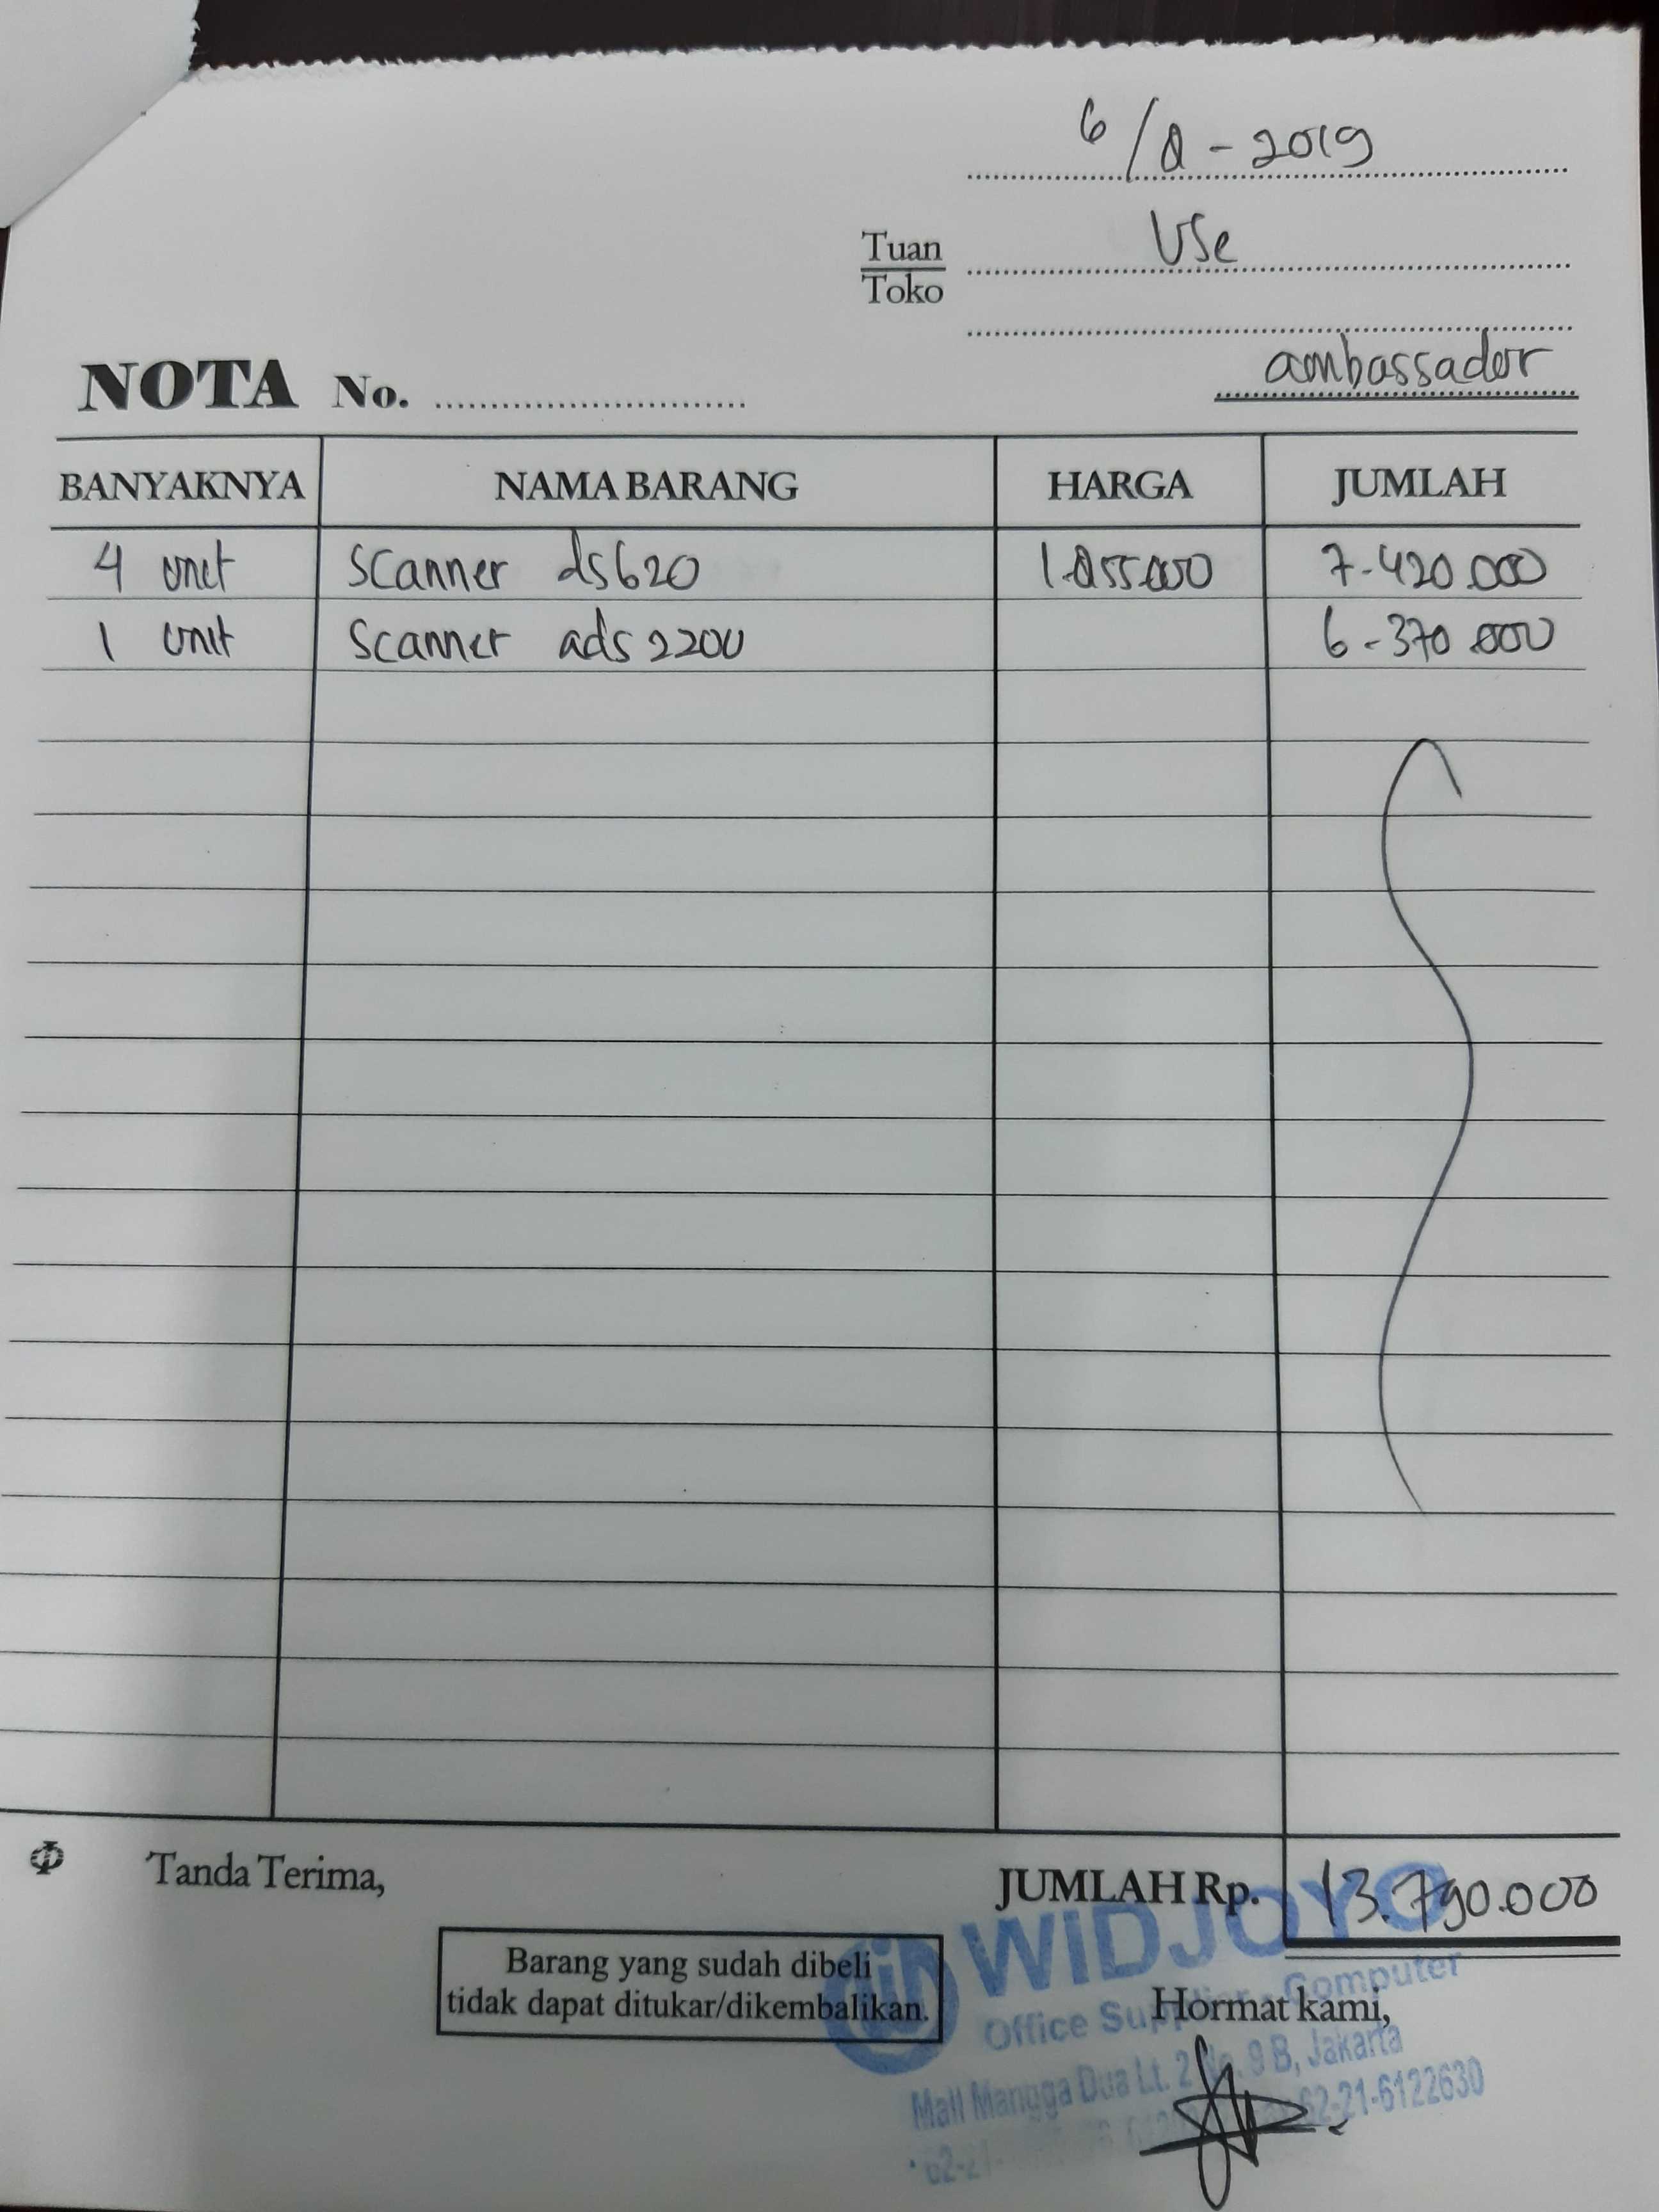 6/8-2019
Tuan
Toko
Use
ambassador
NOTA No.
BANYAKNYA NAMA BARANG HARGA JUMLAH
4 unit Scanner ds620 1.855.000 7.420.000
1 unit Scanner ads 2200 6.370.000
Tanda Terima,
JUMLAH Rp. 13.790.000
Barang yang sudah dibeli
tidak dapat ditukar/dikembalikan.
WIDJOYO
Office Supplier Computer
Hormat kami,
Mall Mangga Dua Lt. 2 No. 9 B, Jakarta
62-21-6122630
62-21-